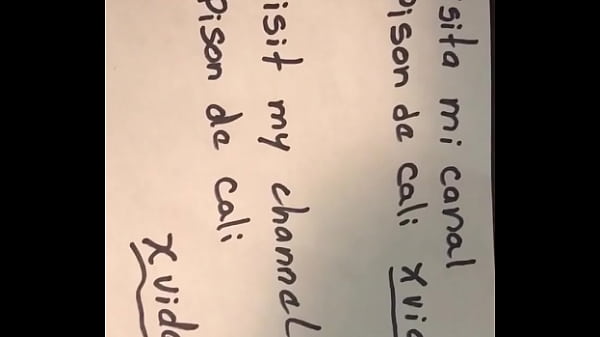 sita mi canal
pison de cali xvid
isit my channel
pison de cali
xvide